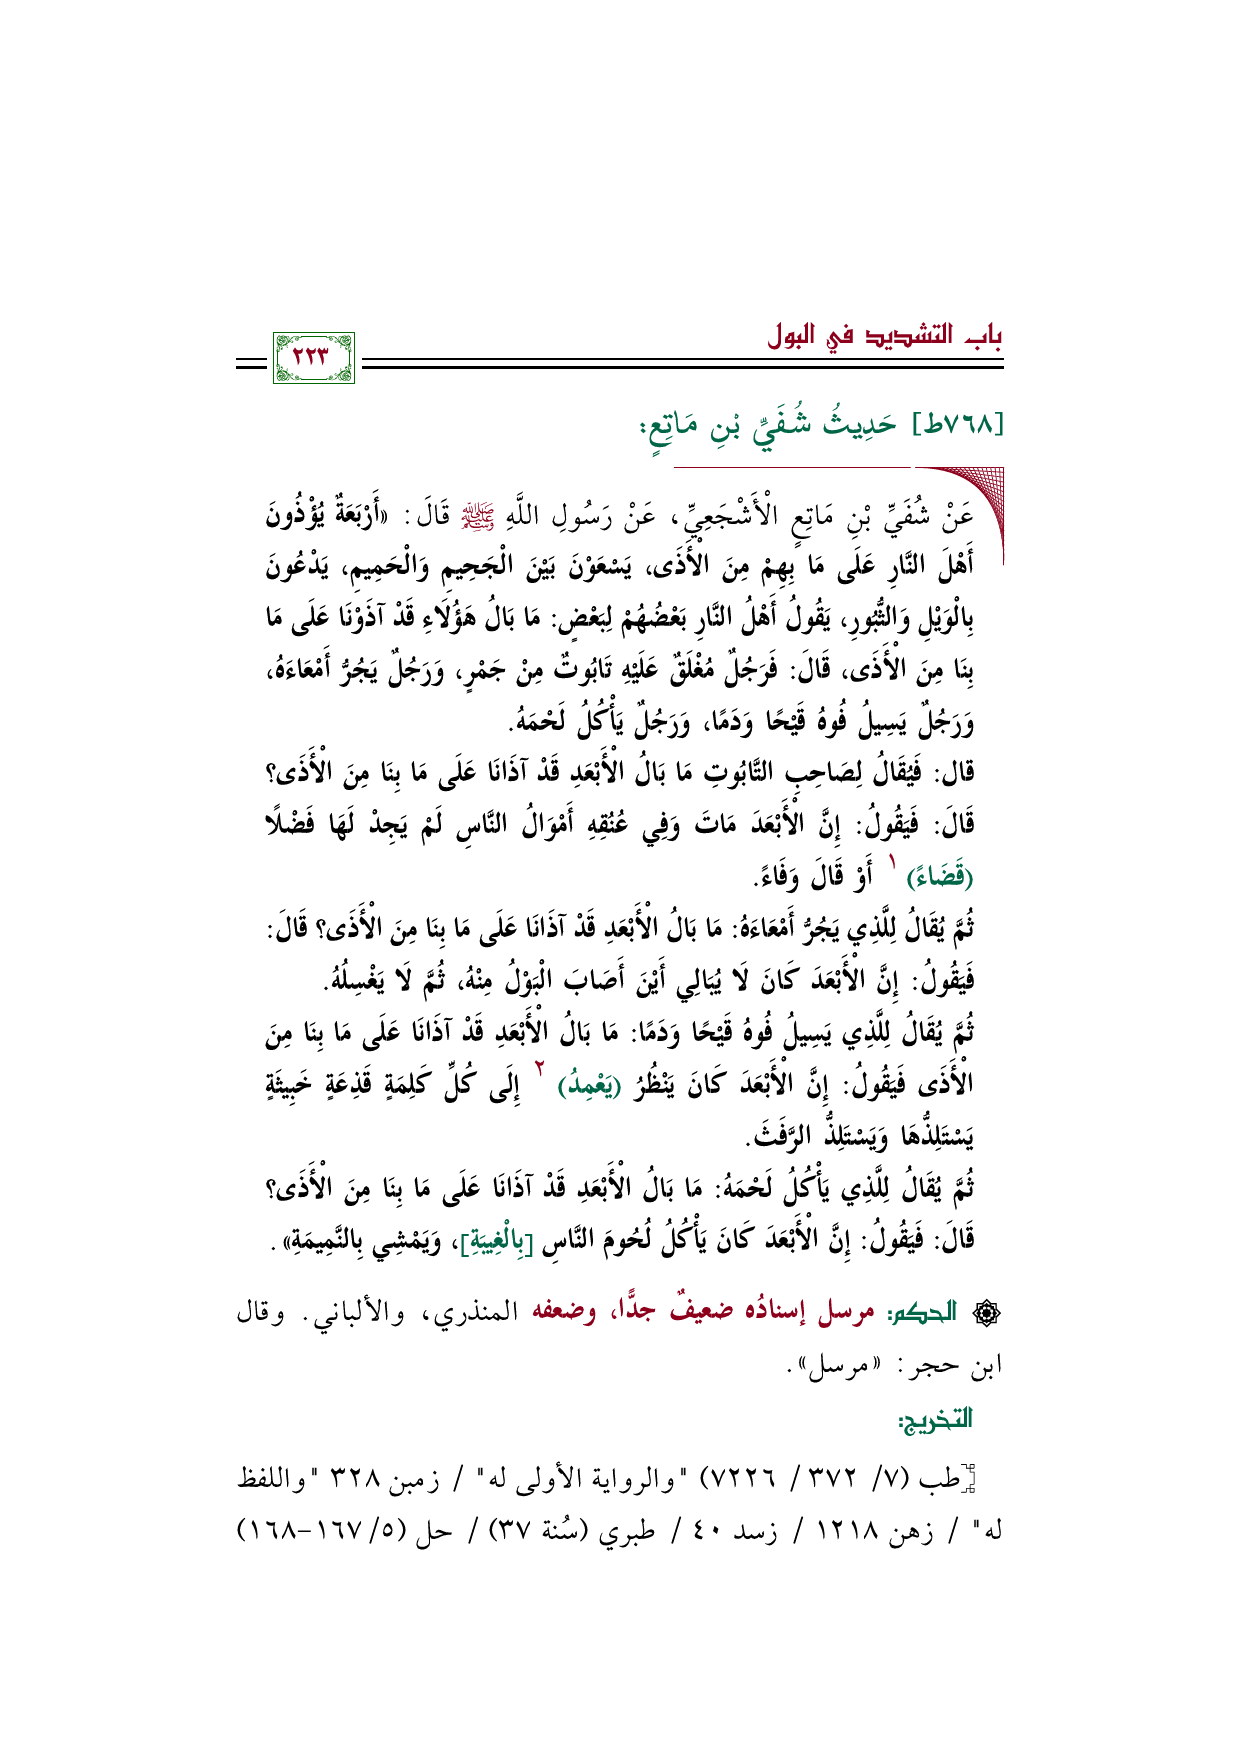 باب التشديد في البول
٢٢٣
[٧٦٨ط] حَدِيثُ شُفَيِّ بْنِ مَاتِعٍ:
عَنْ شُفَيِّ بْنِ مَاتِعٍ الْأَشْجَعِيِّ، عَنْ رَسُولِ اللَّهِ ﷺ قَالَ: «أَرْبَعَةٌ يُؤْذُونَ
أَهْلَ النَّارِ عَلَى مَا بِهِمْ مِنَ الْأَذَى، يَسْعَوْنَ بَيْنَ الْجَحِيمِ وَالْحَمِيمِ، يَدْعُونَ
بِالْوَيْلِ وَالثُّبُورِ، يَقُولُ أَهْلُ النَّارِ بَعْضُهُمْ لِبَعْضٍ: مَا بَالُ هَؤُلَاءِ قَدْ آذَوْنَا عَلَى مَا
بِنَا مِنَ الْأَذَى، قَالَ: فَرَجُلٌ مُغْلَقٌ عَلَيْهِ تَابُوتٌ مِنْ جَمْرٍ، وَرَجُلٌ يَجُرُّ أَمْعَاءَهُ،
وَرَجُلٌ يَسِيلُ فُوهُ قَيْحًا وَدَمًا، وَرَجُلٌ يَأْكُلُ لَحْمَهُ.
قال: فَيُقَالُ لِصَاحِبِ التَّابُوتِ مَا بَالُ الْأَبْعَدِ قَدْ آذَانَا عَلَى مَا بِنَا مِنَ الْأَذَى؟
قَالَ: فَيَقُولُ: إِنَّ الْأَبْعَدَ مَاتَ وَفِي عُنُقِهِ أَمْوَالُ النَّاسِ لَمْ يَجِدْ لَهَا فَضْلًا
(قَضَاءً) ١ أَوْ قَالَ وَفَاءً.
ثُمَّ يُقَالُ لِلَّذِي يَجُرُّ أَمْعَاءَهُ: مَا بَالُ الْأَبْعَدِ قَدْ آذَانَا عَلَى مَا بِنَا مِنَ الْأَذَى؟ قَالَ:
فَيَقُولُ: إِنَّ الْأَبْعَدَ كَانَ لَا يُبَالِي أَيْنَ أَصَابَ الْبَوْلُ مِنْهُ، ثُمَّ لَا يَغْسِلُهُ.
ثُمَّ يُقَالُ لِلَّذِي يَسِيلُ فُوهُ قَيْحًا وَدَمًا: مَا بَالُ الْأَبْعَدِ قَدْ آذَانَا عَلَى مَا بِنَا مِنَ
الْأَذَى فَيَقُولُ: إِنَّ الْأَبْعَدَ كَانَ يَنْظُرُ (يَعْمِدُ) ٢ إِلَى كُلِّ كَلِمَةٍ قَذِعَةٍ خَبِيثَةٍ
يَسْتَلِذُّهَا وَيَسْتَلِذُّ الرَّفَثَ.
ثُمَّ يُقَالُ لِلَّذِي يَأْكُلُ لَحْمَهُ: مَا بَالُ الْأَبْعَدِ قَدْ آذَانَا عَلَى مَا بِنَا مِنَ الْأَذَى؟
قَالَ: فَيَقُولُ: إِنَّ الْأَبْعَدَ كَانَ يَأْكُلُ لُحُومَ النَّاسِ [بِالْغِيبَةِ]، وَيَمْشِي بِالنَّمِيمَةِ».
الحكم: مرسل إسنادُه ضعيفٌ جدًّا، وضعفه المنذري، والألباني. وقال
ابن حجر: «مرسل».
التخريج:
[طب (٧/ ٣٧٢ / ٧٢٢٦) "والرواية الأولى له" / زمبن ٣٢٨ "واللفظ
له" / زهن ١٢١٨ / زسد ٤٠ / طبري (سُنة ٣٧) / حل (٥/ ١٦٧-١٦٨)